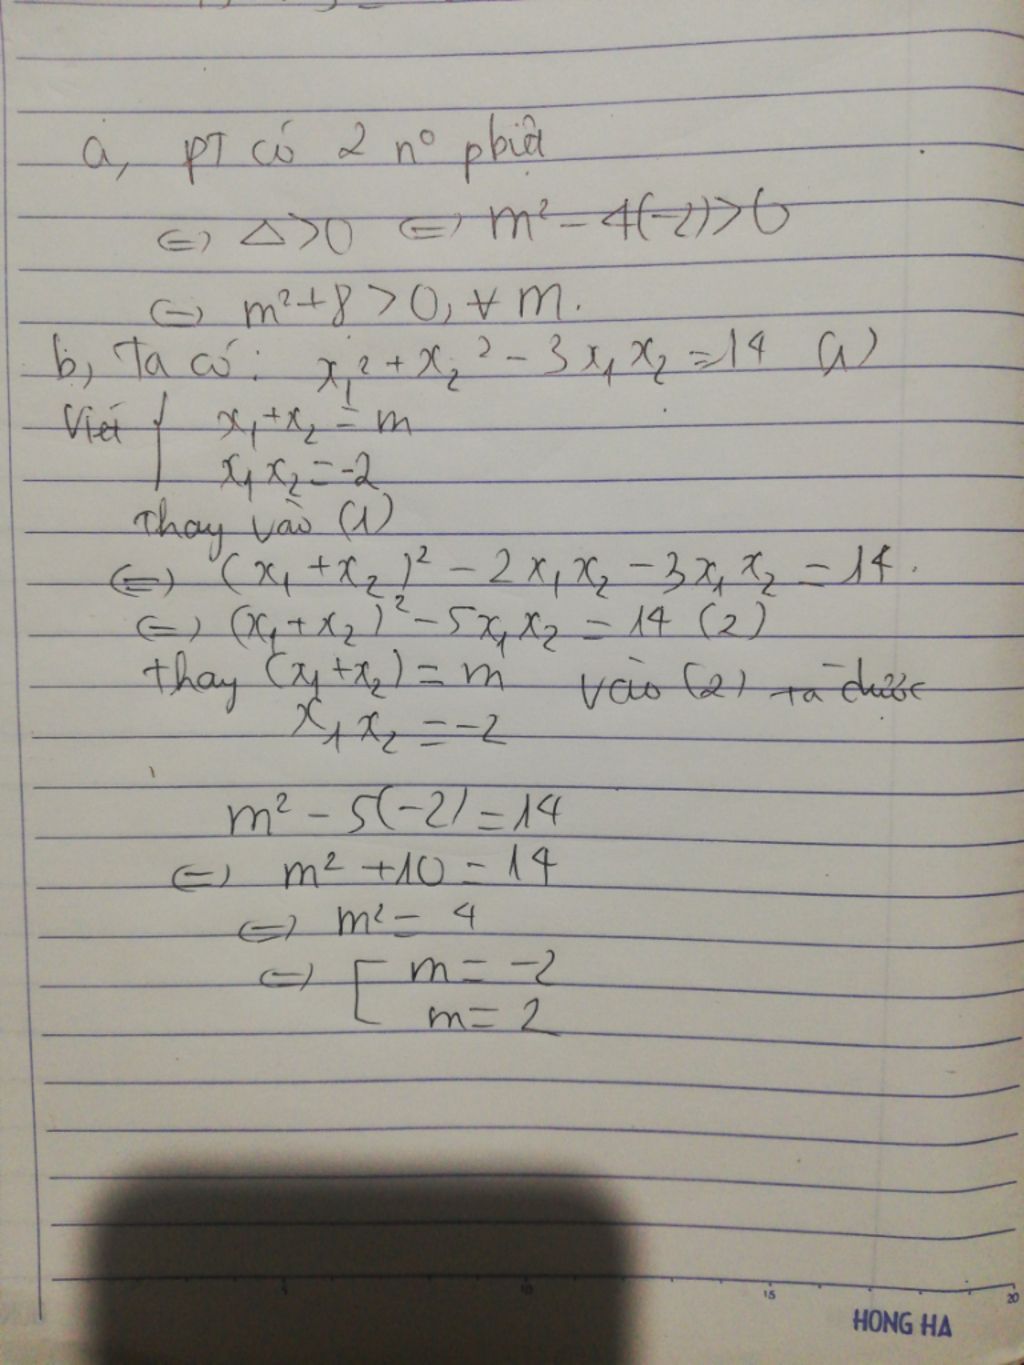 a, PT có 2 n° pbiệt
⇔ Δ>0 ⇔ m² - 4(-2)>0
⇔ m²+8 >0, ∀ m.
b, Ta có: x₁² + x₂² - 3x₁x₂ = 14 (1)
Viét { x₁+x₂ = m
x₁x₂ = -2
Thay vào (1)
⇔ (x₁ + x₂)² - 2x₁x₂ - 3x₁x₂ = 14.
⇔ (x₁+x₂)² - 5x₁x₂ = 14 (2)
thay (x₁+x₂) = m vào (2) ta được
x₁x₂ = -2
m² - 5(-2) = 14
⇔ m² +10 = 14
⇔ m² = 4
⇔ [ m = -2
m = 2
5 10 15 20
HONG HA